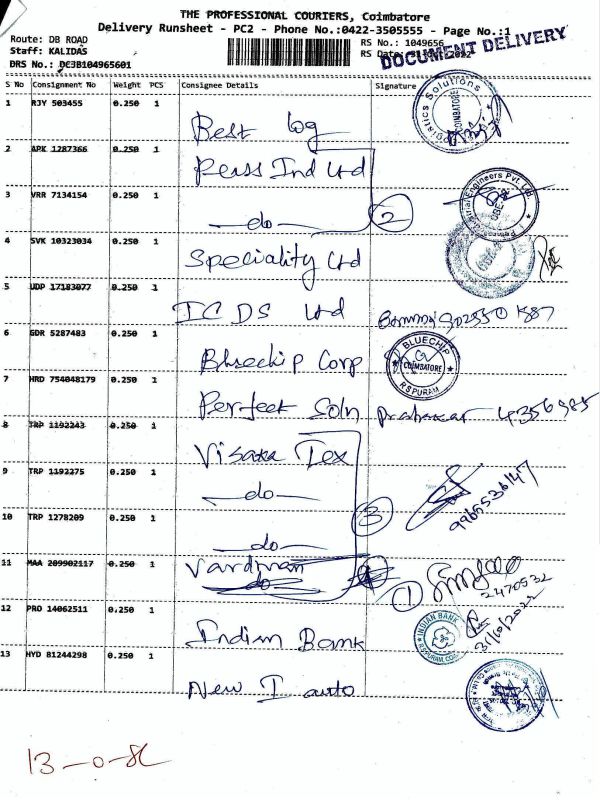 THE PROFESSIONAL COURIERS, Coimbatore
Delivery Runsheet - PC2 - Phone No.:0422-3505555 - Page No.:1
Route: DB ROAD
RS No.: 1049656
Staff: KALIDAS
RS Date:
DOCUMENT DELIVERY
DRS No.: DC3B104965601
S No Consignment No Weight PCS Consignee Details Signature
1 RJY 503455 0.250 1 Best log
2 APK 1287366 0.250 1 Perss Ind Ltd
3 VRR 7134154 0.250 1 —do— 2
4 SVK 10323034 0.250 1 Speciality Ltd
5 UDP 17183077 0.250 1 ICDS Ltd
6 GDR 5287483 0.250 1 Bluechip Corp
BLUECHIP COIMBATORE RSPURAM
7 HRD 754048179 0.250 1 Perfect Soln Prabakar 4356985
8 TRP 1192243 0.250 1 Visaka Tex
9 TRP 1192275 0.250 1 —do—
9965536147
10 TRP 1278209 0.250 1 —do— 3
11 MAA 209902117 0.250 1 Vardman 1
2470532
12 PRO 14062511 0.250 1 Indian Bank
INDIAN BANK
31/10/2022
13 HYD 81244298 0.250 1 New I auto
13-0-